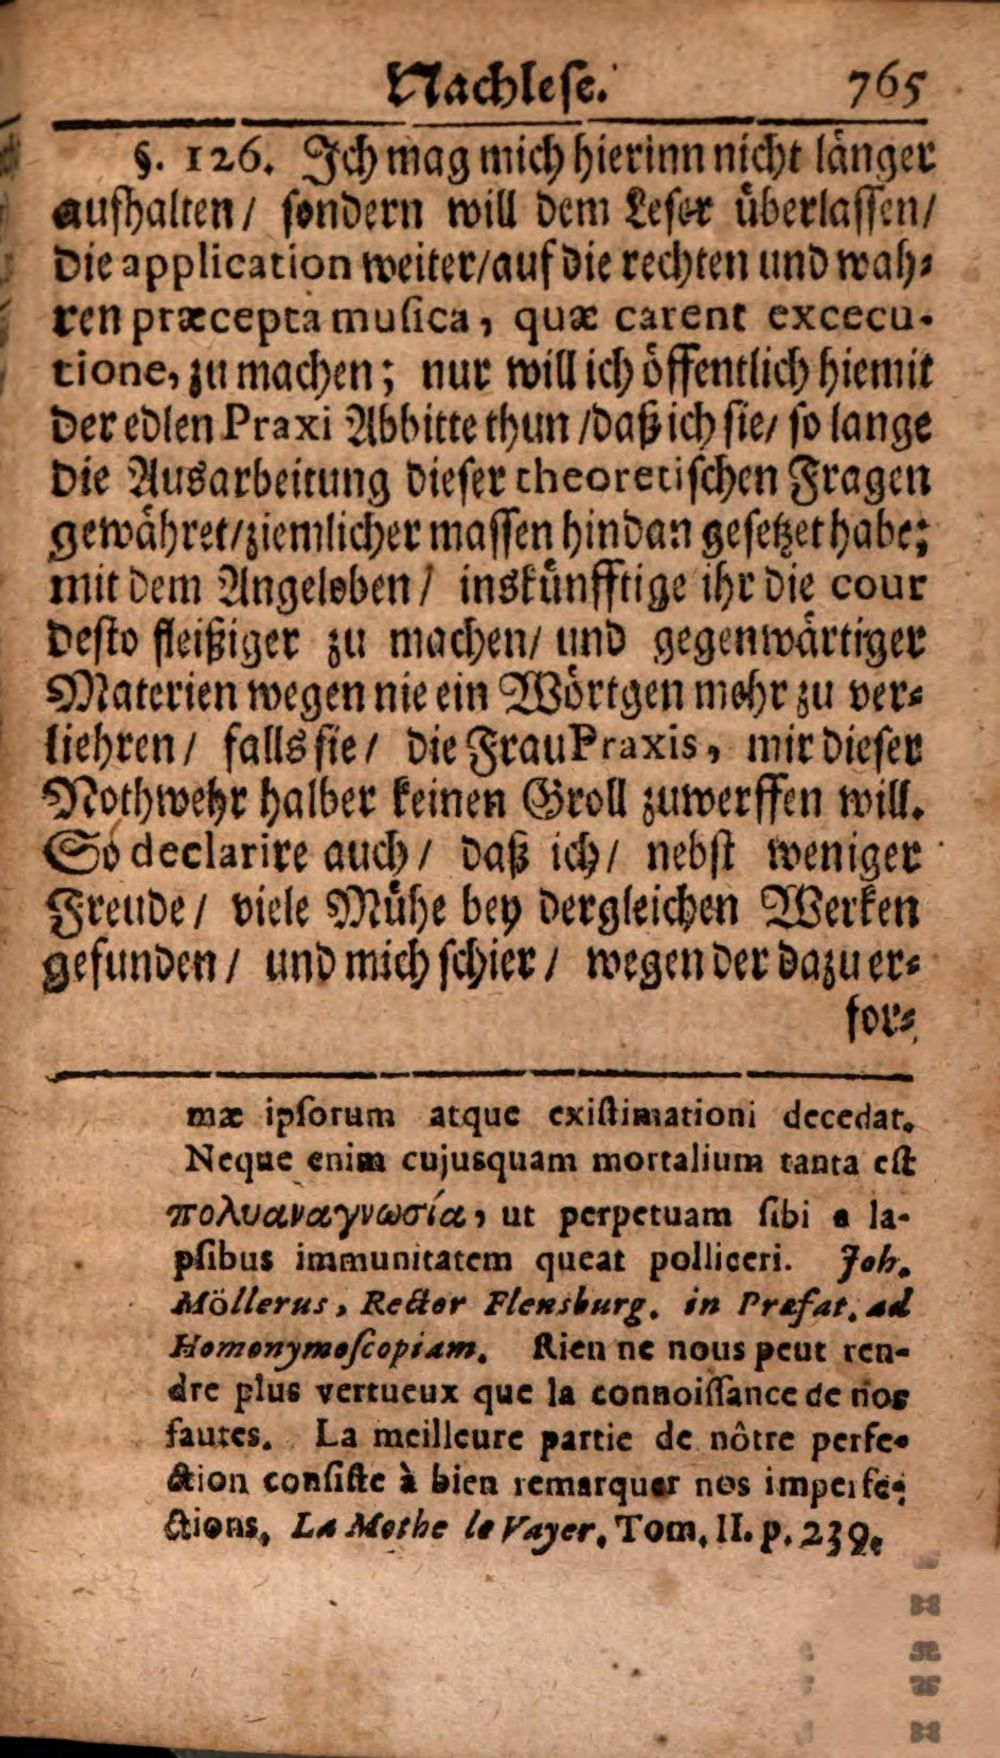 Nachlese. 765
§. 126. Ich mag mich hierinn nicht länger
aufhalten/ sondern will dem Leser überlassen/
die application weiter/auf die rechten und wah-
ren præcepta musica, quæ carent excecu-
tione, zu machen; nur will ich öffentlich hiemit
der edlen Praxi Abbitte thun/daß ich sie/ so lange
die Ausarbeitung dieser theoretischen Fragen
gewähret/ziemlicher massen hindan gesetzet habe;
mit dem Angeloben/ inskünfftige ihr die cour
desto fleißiger zu machen/ und gegenwärtiger
Materien wegen nie ein Wörtgen mehr zu ver-
liehren/ falls sie/ die Frau Praxis, mir dieser
Nothwehr halber keinen Groll zuwerffen will.
So declarire auch/ daß ich/ nebst weniger
Freude/ viele Mühe bey dergleichen Werken
gefunden/ und mich schier/ wegen der dazu er-
for-
mæ ipsorum atque existimationi decedat.
Neque enim cujusquam mortalium tanta est
πολυαναγνωσία, ut perpetuam sibi a la-
psibus immunitatem queat polliceri. Joh.
Möllerus, Rector Flensburg. in Præfat. ad
Homonymoscopiam. Rien ne nous peut ren-
dre plus vertueux que la connoissance de nos
fautes. La meilleure partie de nôtre perfe-
ction consiste à bien remarquer nos imperfe-
ctions, La Mothe le Vayer, Tom. II. p. 239.